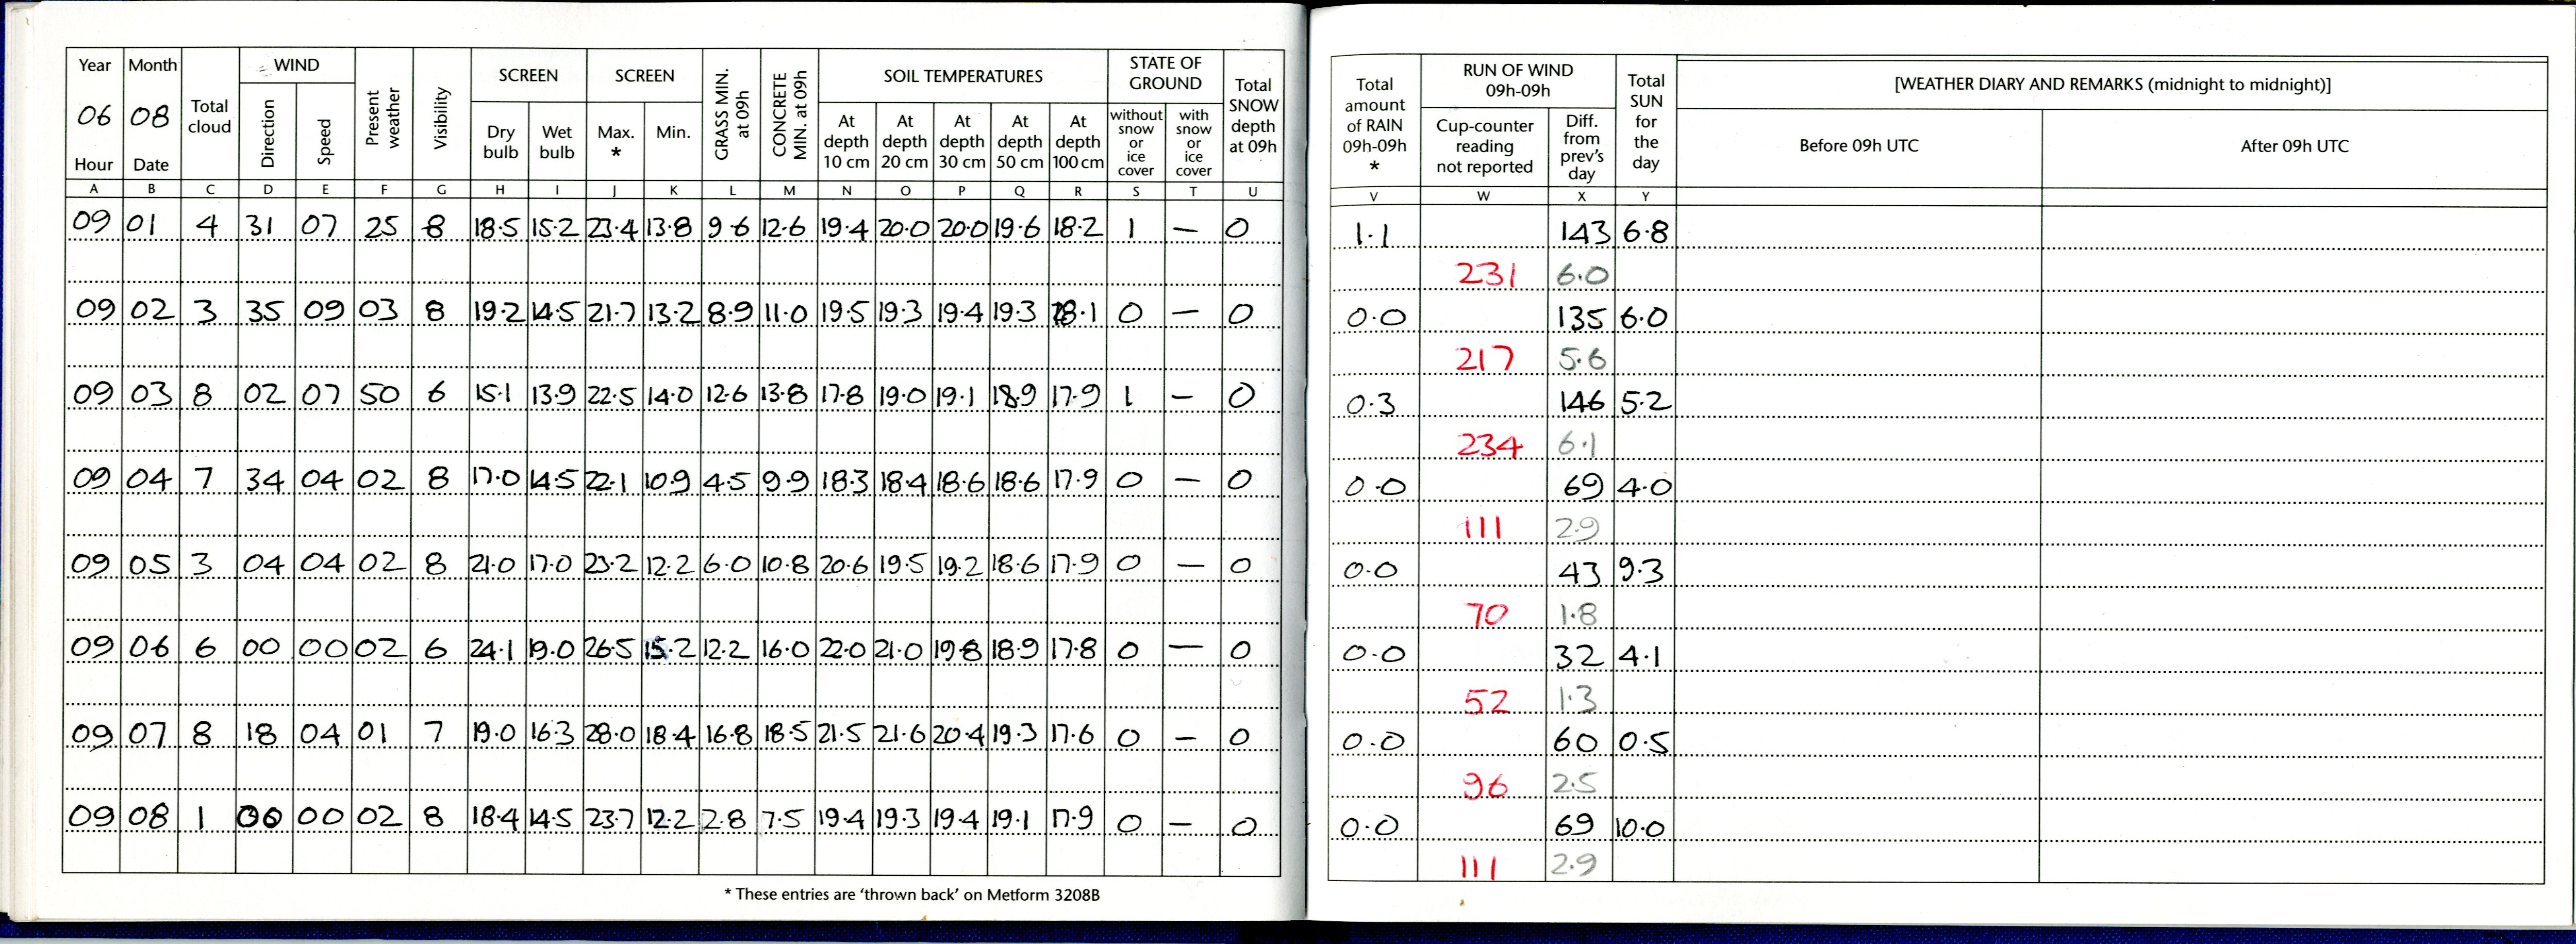 Year Month Total cloud WIND Present weather Visibility SCREEN SCREEN GRASS MIN. at 09h CONCRETE MIN. at 09h SOIL TEMPERATURES STATE OF GROUND Total SNOW depth at 09h
06 08 Direction Speed Dry bulb Wet bulb Max. * Min. At depth 10 cm At depth 20 cm At depth 30 cm At depth 50 cm At depth 100 cm without snow or ice cover with snow or ice cover
Hour Date
A B C D E F G H I J K L M N O P Q R S T U
09 01 4 31 07 25 8 18.5 15.2 23.4 13.8 9.6 12.6 19.4 20.0 20.0 19.6 18.2 1 — 0
09 02 3 35 09 03 8 19.2 14.5 21.7 13.2 8.9 11.0 19.5 19.3 19.4 19.3 18.1 0 — 0
09 03 8 02 07 50 6 15.1 13.9 22.5 14.0 12.6 13.8 17.8 19.0 19.1 18.9 17.9 1 — 0
09 04 7 34 04 02 8 17.0 14.5 22.1 10.9 4.5 9.9 18.3 18.4 18.6 18.6 17.9 0 — 0
09 05 3 04 04 02 8 21.0 17.0 23.2 12.2 6.0 10.8 20.6 19.5 19.2 18.6 17.9 0 — 0
09 06 6 00 00 02 6 24.1 19.0 26.5 15.2 12.2 16.0 22.0 21.0 19.8 18.9 17.8 0 — 0
09 07 8 18 04 01 7 19.0 16.3 28.0 18.4 16.8 18.5 21.5 21.6 20.4 19.3 17.6 0 — 0
09 08 1 00 00 02 8 18.4 14.5 23.7 12.2 2.8 7.5 19.4 19.3 19.4 19.1 17.9 0 — 0
* These entries are ‘thrown back’ on Metform 3208B
Total amount of RAIN 09h-09h * RUN OF WIND 09h-09h Total SUN for the day [WEATHER DIARY AND REMARKS (midnight to midnight)]
Cup-counter reading not reported Diff. from prev's day Before 09h UTC After 09h UTC
V W X Y
1.1 143 6.8
231 6.0
0.0 135 6.0
217 5.6
0.3 146 5.2
234 6.1
0.0 69 4.0
111 2.9
0.0 43 9.3
70 1.8
0.0 32 4.1
52 1.3
0.0 60 0.5
96 2.5
0.0 69 10.0
111 2.9